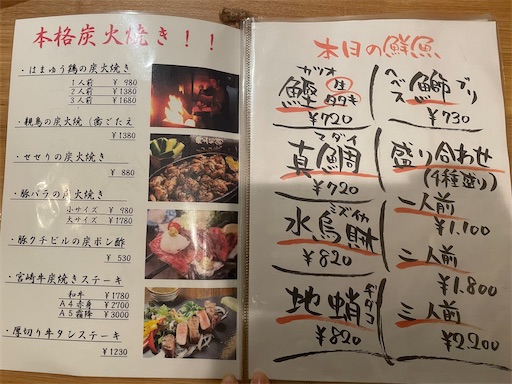 本格炭火焼き！！
・はまゆう鶏の炭火焼き
1人前 ¥ 980
2人前 ¥1380
3人前 ¥1680
・親鳥の炭火焼（歯ごたえ
¥1380
・せせりの炭火焼き
¥ 880
・豚バラの炭火焼き
小サイズ ¥ 980
大サイズ ¥1780
・豚クチビルの炭ポン酢
¥ 530
・宮崎牛炭焼きステーキ
和牛 ¥1780
A4赤身 ¥2700
A5霜降 ¥3000
・厚切り牛タンステーキ
¥1230
本日の鮮魚
カツオ
鰹 生 タタキ
¥720
マダイ
真鯛
¥720
ミズイカ
水烏賊
¥820
ヂダコ
地蛸
¥820
ヘベス鰤ブリ
¥730
盛り合わせ
(4種盛り)
一人前
¥1.100
二人前
¥1.800
三人前
¥2.200